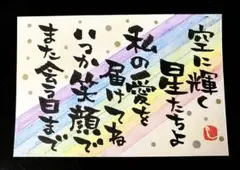 空に輝く
星たちよ
私の愛を
届けてね
いつか笑顔で
また会う日まで